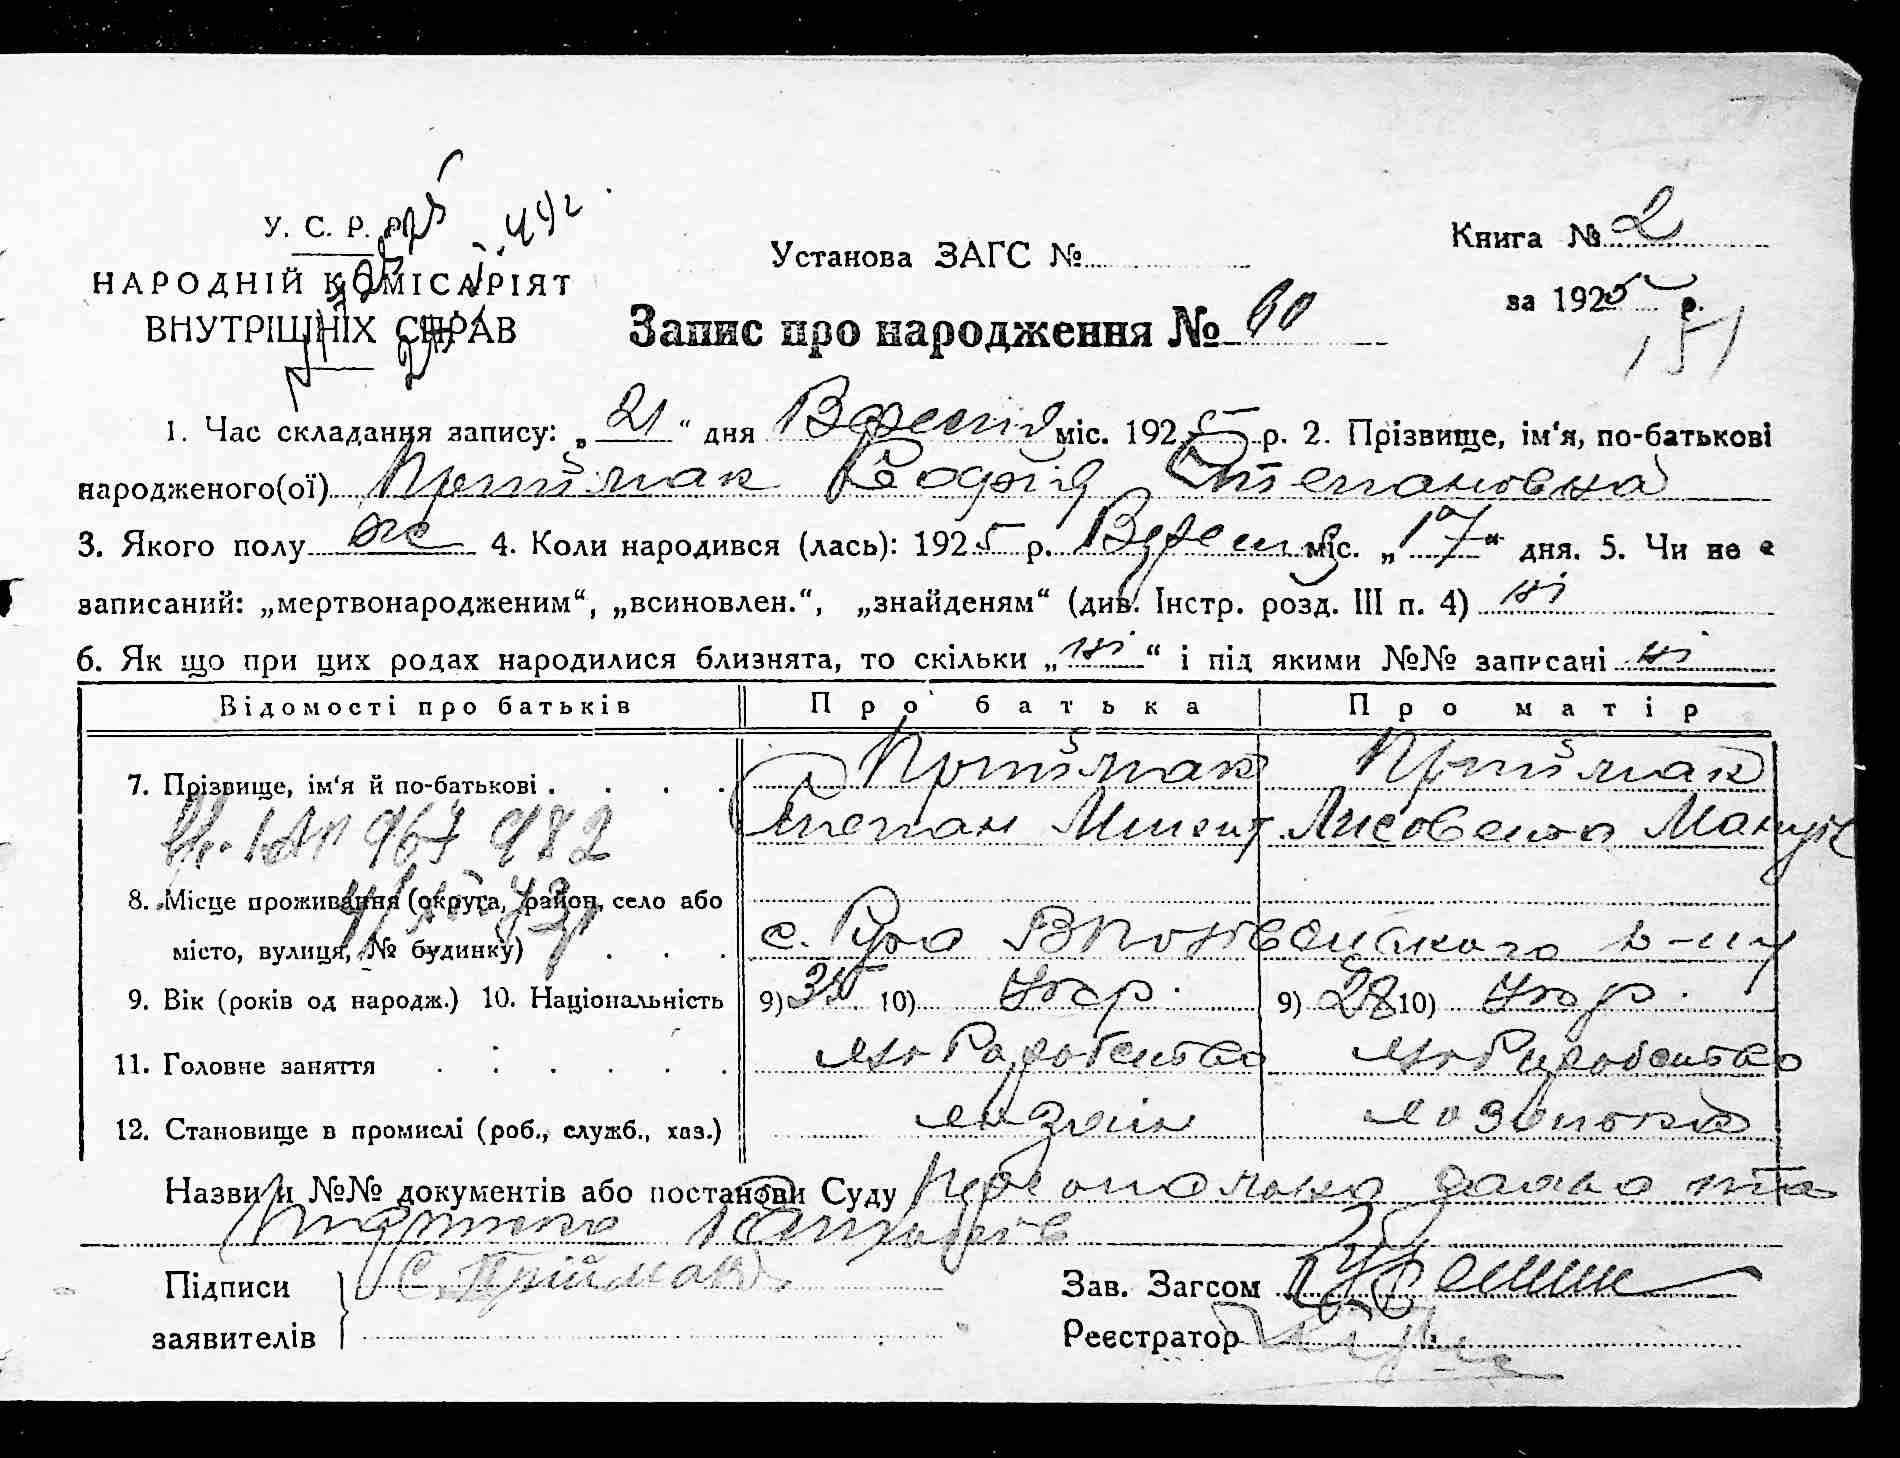 У. С. Р. Р.
НАРОДНІЙ КОМІСАРІЯТ
ВНУТРІШНІХ СПРАВ
Установа ЗАГС №
Книга № 2
за 1925 р.
151
Запис про народження № 60
1. Час складання запису: „21“ дня Вересня міс. 1925 р. 2. Прізвище, ім'я, по-батькові
народженого(ої) Приймак Софія Степановна
3. Якого полу же 4. Коли народився (лась): 1925 р. Вересня міс. „17“ дня. 5. Чи не є
записаний: „мертвонародженим“, „всиновлен.“, „знайденям“ (див. Інстр. розд. III п. 4) ні
6. Як що при цих родах народилися близнята, то скільки „ні“ і під якими №№ записані ні
Відомості про батьків Про батька Про матір
7. Прізвище, ім'я й по-батькові Приймак Приймак
Степан Лисовета
8. Місце проживання (округа, район, село або
місто, вулиця, № будинку) с. Руда р-ну
9. Вік (років од народж.) 10. Національність 9) 35 10) Укр. 9) 28 10) Укр.
11. Головне заняття хліборобство хліборобство
12. Становище в промислі (роб., служб., хаз.) хозяїн
Назви й №№ документів або постанови Суду Персональна заява та
Підписи
заявителів
С. Приймак
Зав. Загсом
Реєстратор